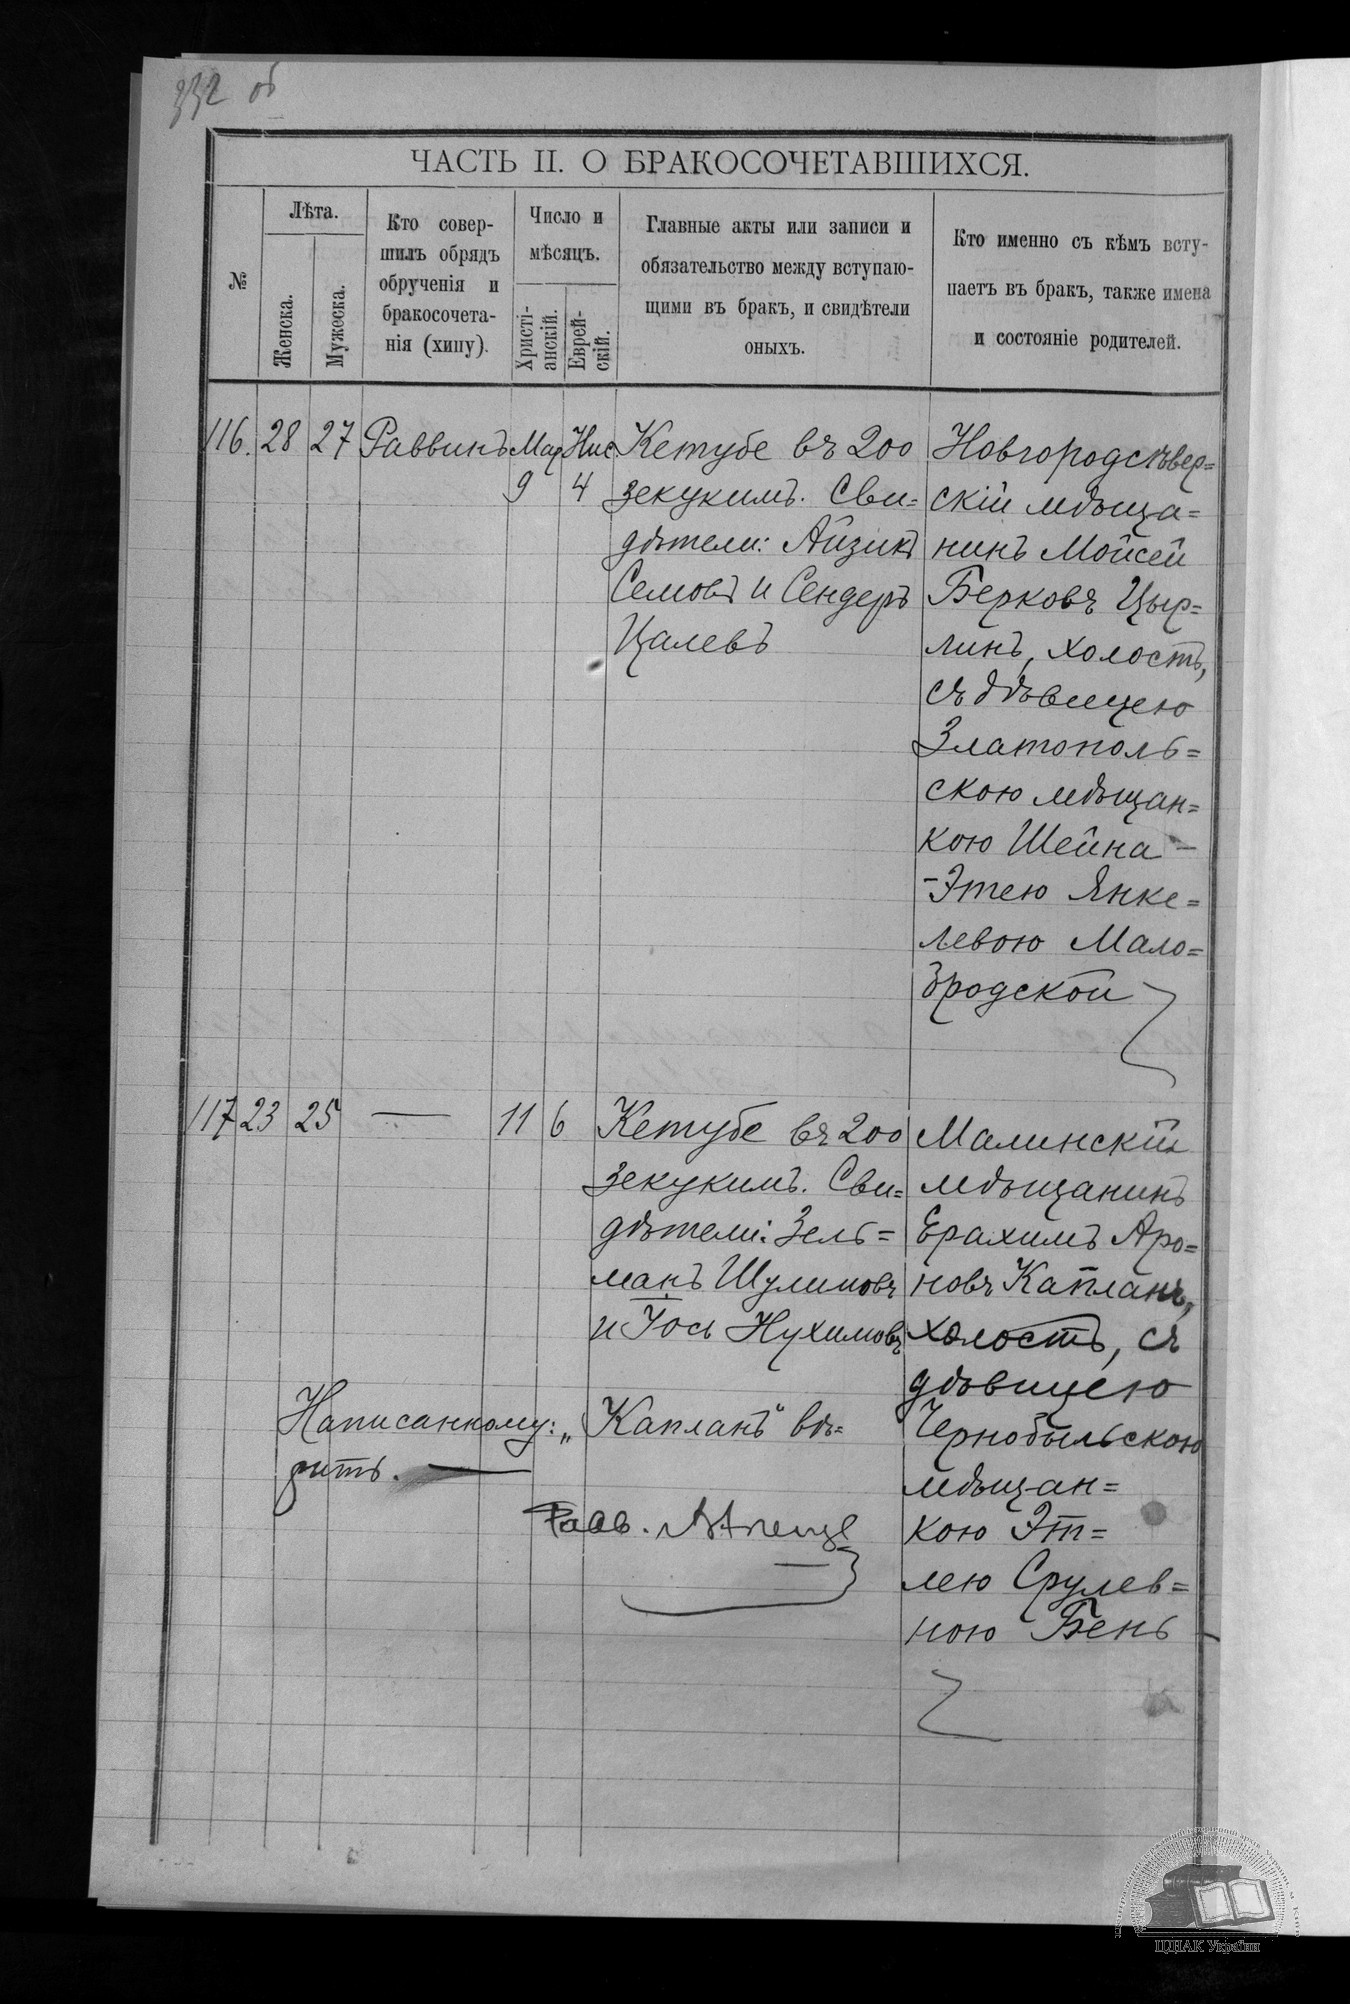 332 об
ЧАСТЬ II. О БРАКОСОЧЕТАВШИХСЯ.
№
Лѣта.
Женска.
Мужеска.
Кто совер-
шилъ обрядъ
обрученія и
бракосочета-
нія (хипу).
Число и
мѣсяцъ.
Христі-
анскій.
Еврей-
скій.
Главные акты или записи и
обязательство между вступаю-
щими въ бракъ, и свидѣтели
оныхъ.
Кто именно съ кѣмъ всту-
паетъ въ бракъ, также имена
и состояніе родителей.
116. 28 27 Раввинъ Мар 9 Нис 4
Кетубе въ 200
зекукимъ. Сви=
дѣтели: Айзикъ
Семовъ и Сендеръ
Цалевъ
Новгородсѣвер=
скій мѣща=
нинъ Мойсей
Берковъ Цыр=
линъ, холостъ,
съ дѣвицею
Златополь=
скою мѣщан=
кою Шейна-
-Этею Янке=
левою Мало=
бродской
117 23 25 — 11 6
Кетубе въ 200
зекукимъ. Сви=
дѣтели: Зель=
манъ Шулимовъ
и Іось Нухимовъ
Малинскій
мѣщанинъ
Ерахимъ Аро=
новъ Капланъ,
холостъ, съ
дѣвицею
Чернобыльскою
мѣщан=
кою Эт=
лею Срулев=
ною Бень
Написанному: „Капланъ" вѣ=
рить. —
Равв.
ЦДІАК України